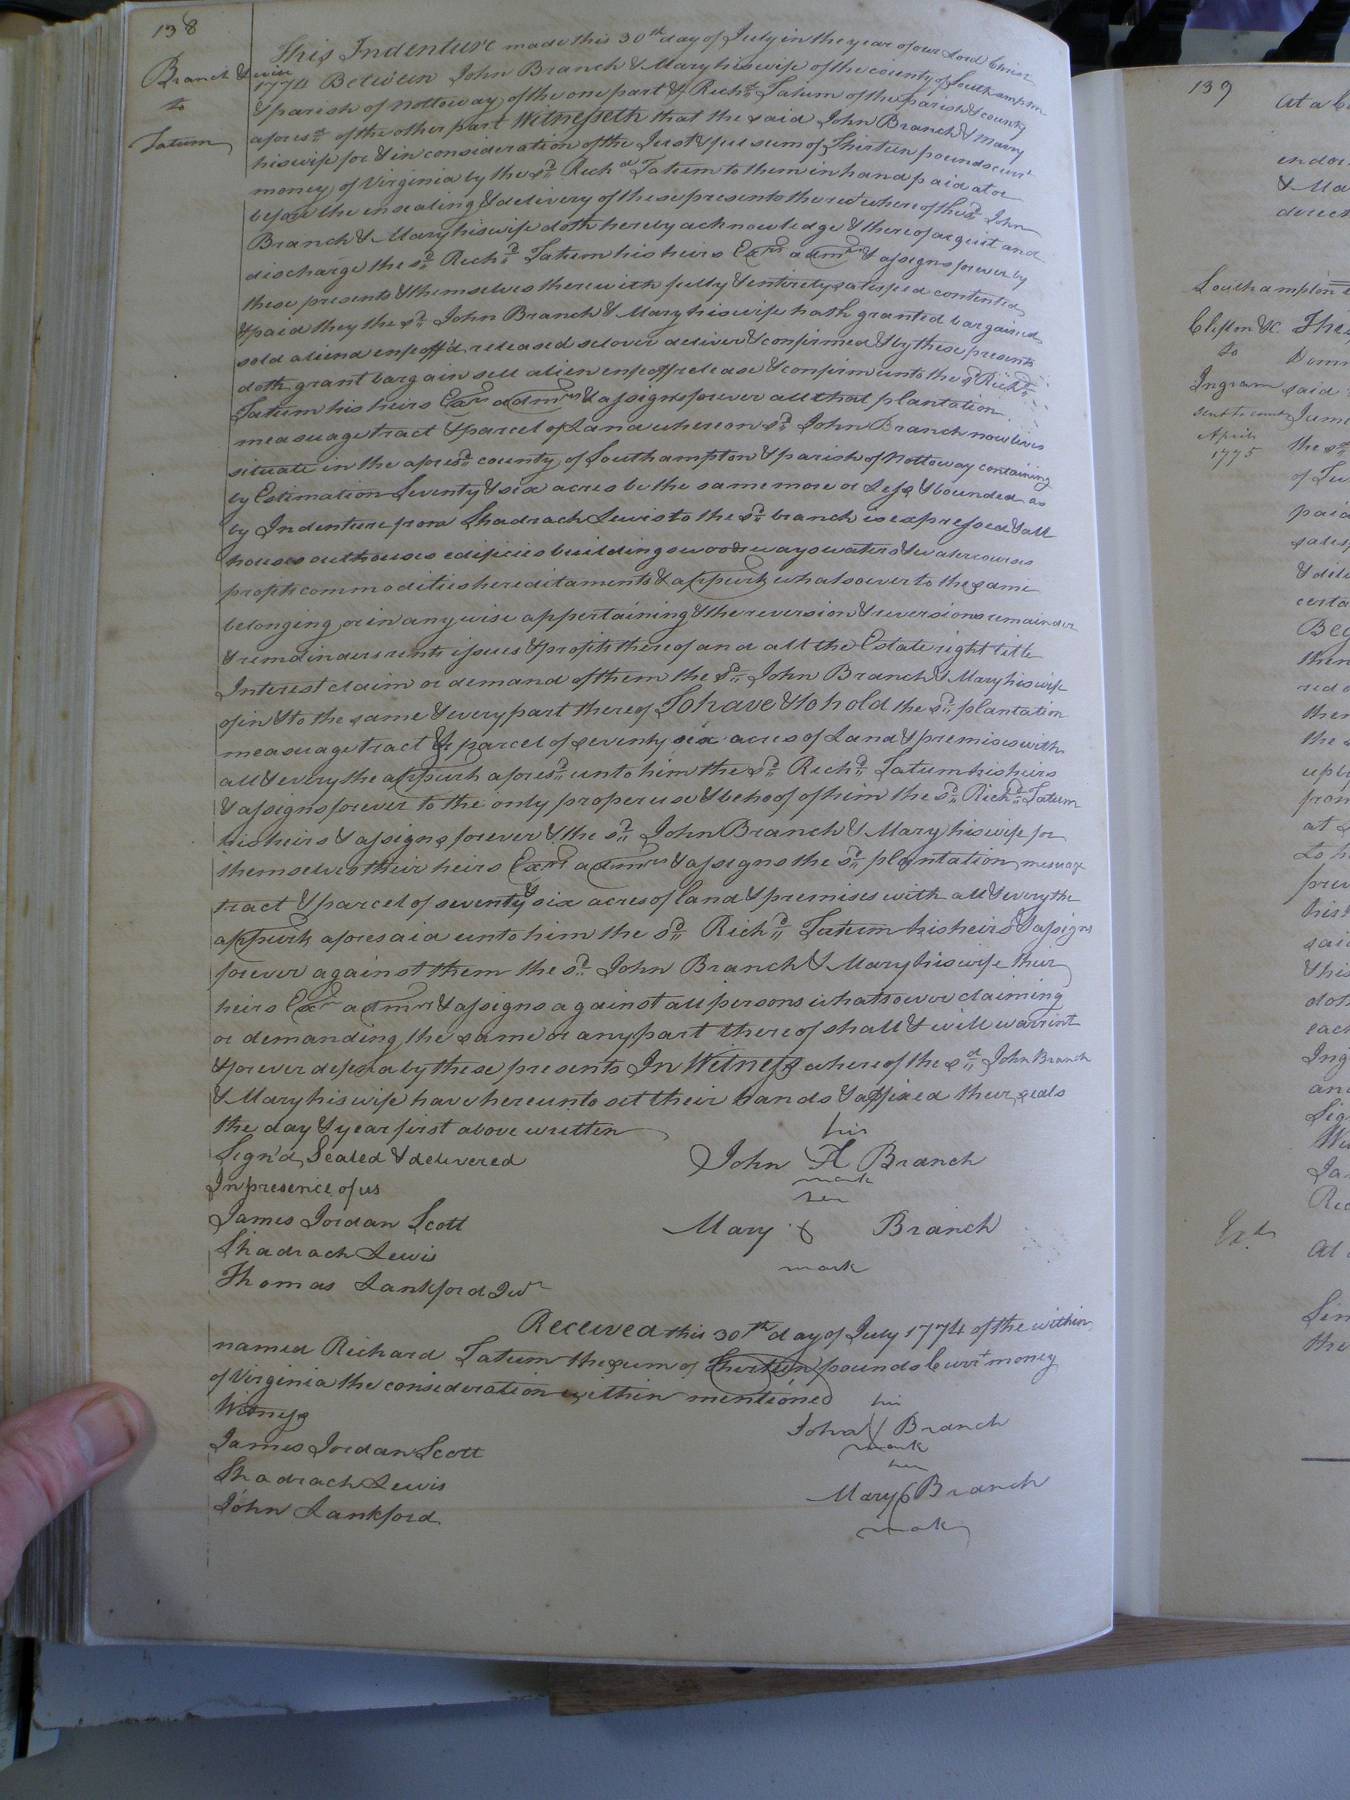 138
Branch & wife
to
Tatum
This Indenture made this 30th day of July in the year of our Lord Christ
1774 Between John Branch & Mary his wife of the county of Southampton
& parish of Nottoway of the one part & Richd Tatum of the parish & county
aforesd of the other part Witnesseth that the said John Branch & Marry
his wife for & in consideration of the Just & full sum of Thirteen pounds curr't
money of Virginia by the sd Richd Tatum to them in hand paid at or
before the ensealing & delivery of these presents the rec't whereof the sd John
Branch & Mary his wife doth hereby acknowledge & thereof acquit and
discharge the sd Richd Tatum his heirs Exrs admrs & assigns forever by
these presents & themselves therewith fully & entirely satisfied contented
& paid they the sd John Branch & Mary his wife hath granted bargained
sold aliend enfeoff'd released delover deliver & confirmed & by these presents
doth grant bargain sell alien enfeoff release & confirm unto the sd Richd
Tatum his heirs Exrs admrs & assigns forever all that plantation
measuage tract & parcel of Land whereon sd John Branch now lives
situate in the aforesd county of Southampton & parish of Nottoway containing
by Estimation Seventy & six acres be the same more or Less & bounded as
by Indenture from Shadrach Lewis to the sd branch is expressed & all
houses outhouses edificies buildings woods ways waters & watercourses
profits commodities hereditaments & appurts whatsoever to the same
belonging or in any wise appertaining & the reversion & reversions remainder
& remainders rents issues & profits thereof and all the Estate right title
Interest claim or demand of them the sd John Branch & Mary his wife
of in & to the same & every part thereof To have & to hold the sd plantation
measuage tract & parcel of seventy six acres of Land & premises with
all & every the appurts aforesd unto him the sd Richd Tatum his heirs
& assigns forever to the only proper use & behoof of him the sd Richd Tatum
his heirs & assigns forever & the sd John Branch & Mary his wife for
themselves their heirs Exrs admrs & assigns the sd plantation mesuage
tract & parcel of seventy & six acres of land & premises with all & every the
appurts aforesaid unto him the sd Richd Tatum his heirs & assigns
forever against them the sd John Branch & Mary his wife their
heirs Exrs admrs & assigns against all persons whatsoever claiming
or demanding the same or any part thereof shall & will warrint
& forever defend by these presents In Witness whereof the sd John Branch
& Mary his wife have hereunto set their hands & affixed their seals
the day & year first above written
Sign'd, Sealed & delivered
In presence of us
James Jordan Scott
Shadrach Lewis
Thomas Lankford Junr
his
John A Branch
mark
her
Mary Branch
mark
Received this 30th day of July 1774 of the within
named Richard Tatum the sum of Thirteen pounds Currt money
of Virginia the consideration within mentioned
Witness
James Jordan Scott
Shadrach Lewis
John Lankford
his
John Branch
mark
her
Mary Branch
mark
139
At a C
endor
& Ma
direct
Southampton
Clifton &C. This
to
Ingram said
sent to county Jame
April the sd
1775
paid
& deli
certa
Beg
then
red o
ther
the s
upto
from
at a
to h
his
said
& his
doth
each
Ing
and
Sig
Exd
At
the